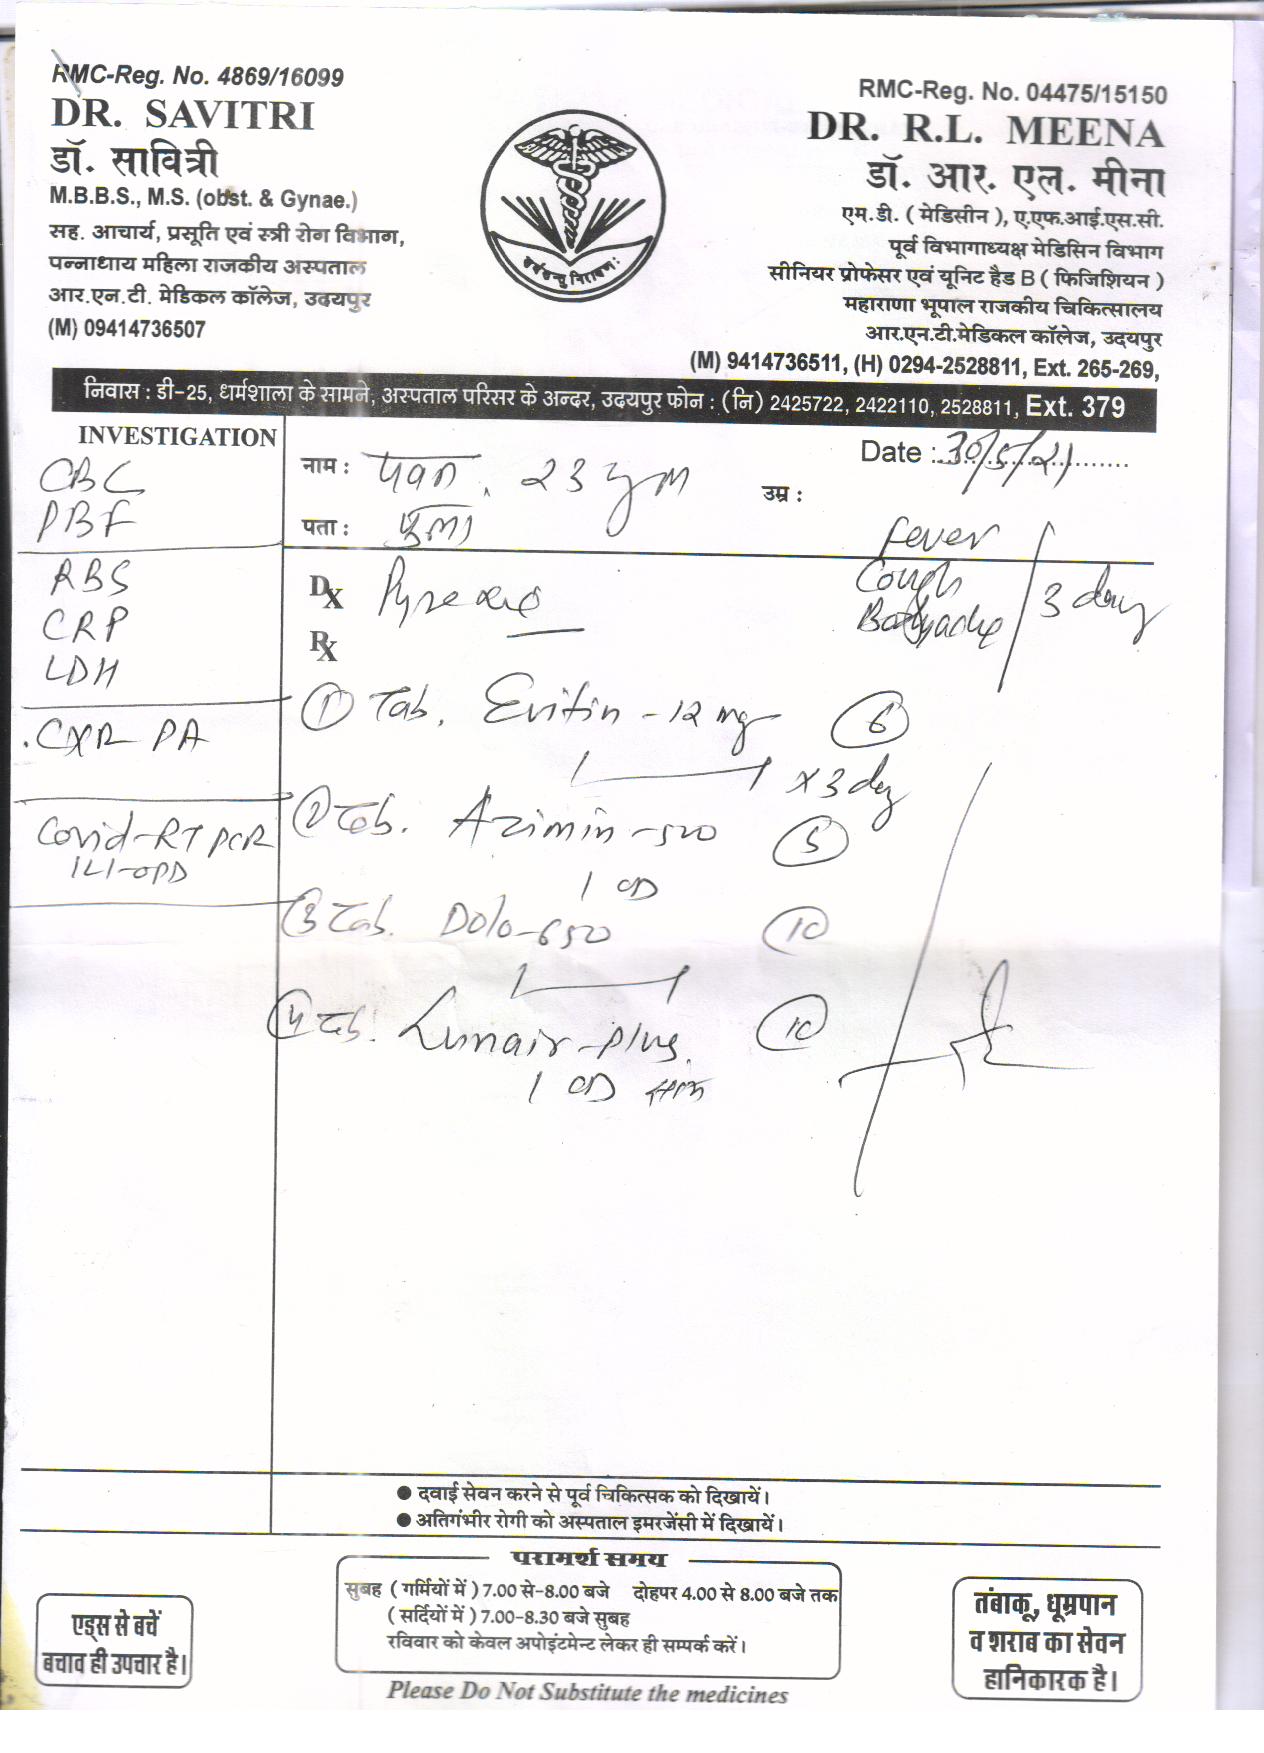 RMC-Reg. No. 4869/16099
DR. SAVITRI
डॉ. सावित्री
M.B.B.S., M.S. (obst. & Gynae.)
सह. आचार्य, प्रसूति एवं स्त्री रोग विभाग,
पन्नाधाय महिला राजकीय अस्पताल
आर.एन.टी. मेडिकल कॉलेज, उदयपुर
(M) 09414736507
RMC-Reg. No. 04475/15150
DR. R.L. MEENA
डॉ. आर. एल. मीना
एम.डी. ( मेडिसीन ), ए.एफ.आई.एस.सी.
पूर्व विभागाध्यक्ष मेडिसिन विभाग
सीनियर प्रोफेसर एवं यूनिट हैड B ( फिजिशियन )
महाराणा भूपाल राजकीय चिकित्सालय
आर.एन.टी.मेडिकल कॉलेज, उदयपुर
(M) 9414736511, (H) 0294-2528811, Ext. 265-269,
निवास : डी-25, धर्मशाला के सामने, अस्पताल परिसर के अन्दर, उदयपुर फोन : (नि) 2425722, 2422110, 2528811, Ext. 379
INVESTIGATION
CBC
PBF
RBS
CRP
LDH
CXR PA
Covid-RTPCR
ILI-OPD
Date : 30/5/21
नाम : पवन, 23 y m
उम्र :
पता :
Fever
Cough
Bodyache
3 day
Dx
Rx
① Tab. Evitin-12 mg ⑥
x 3 day
② Tab. Azimin-500 ⑤
1 OD
③ Tab. Dolo-650 ⑩
④ Tab. Lunair-plus. ⑩
1 OD
● दवाई सेवन करने से पूर्व चिकित्सक को दिखायें।
● अतिगंभीर रोगी को अस्पताल इमरजेंसी में दिखायें।
परामर्श समय
सुबह ( गर्मियों में ) 7.00 से-8.00 बजे दोहपर 4.00 से 8.00 बजे तक
( सर्दियों में ) 7.00-8.30 बजे सुबह
रविवार को केवल अपोइंटमेन्ट लेकर ही सम्पर्क करें।
एड्स से बचें
बचाव ही उपचार है।
तंबाकू, धूम्रपान
व शराब का सेवन
हानिकारक है।
Please Do Not Substitute the medicines